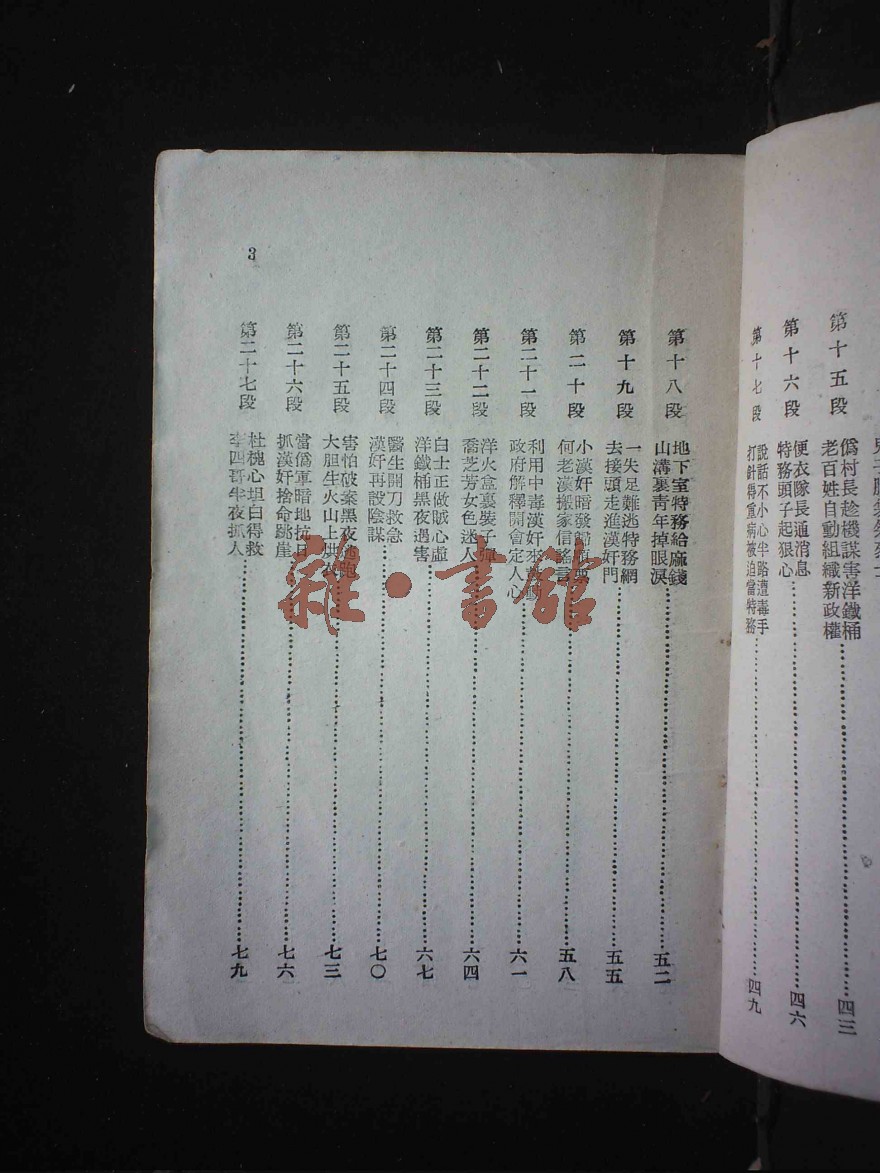 第十五段
僞村長趁機謀害洋鐵桶
老百姓自動組織新政權
四三
第十六段
便衣隊長通消息
特務頭子起狠心
四六
第十七段
說話不小心半路遭毒手
打針得重病被迫當特務
四九
第十八段
地下室特務給麻錢
山溝裏靑年掉眼淚
五二
第十九段
一失足難逃特務網
去接頭走進漢奸門
五五
第二十段
小漢奸暗發歸
何老漢搬家信謠言
五八
第二十一段
利用中毒漢奸來
政府解釋開會定人心
六一
第二十二段
洋火盒裏裝子彈
喬芝芳女色迷人
六四
第二十三段
白士正做賊心虛
洋鐵桶黑夜遇害
六七
第二十四段
醫生開刀救急
漢奸再設陰謀
七〇
第二十五段
害怕破案黑夜逃跑
大胆生火山上
七三
第二十六段
當僞軍暗地抗日
抓漢奸捨命跳崖
七六
第二十七段
杜槐心坦白得救
李四哥半夜抓人
七九
3
雜·書館